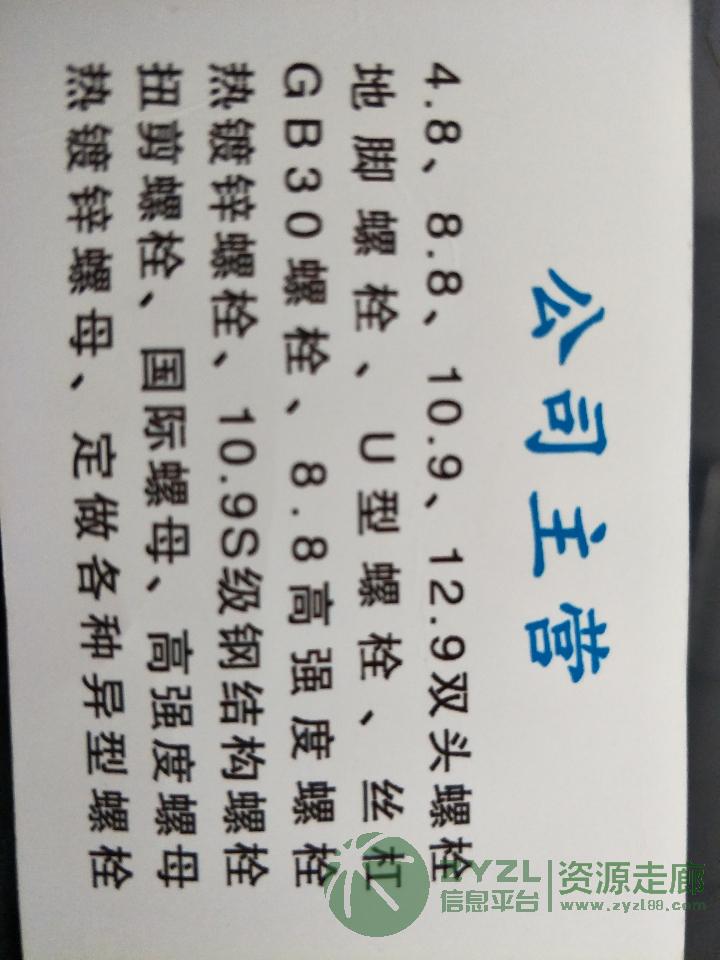 公司主营
4.8、8.8、10.9、12.9双头螺栓
地脚螺栓、U型螺栓、丝杠
GB30螺栓、8.8高强度螺栓
热镀锌螺栓、10.9S级钢结构螺栓
扭剪螺栓、国际螺母、高强度螺母
热镀锌螺母、定做各种异型螺栓
ZYZL
信息平台
资源走廊
www.zyzl88.com